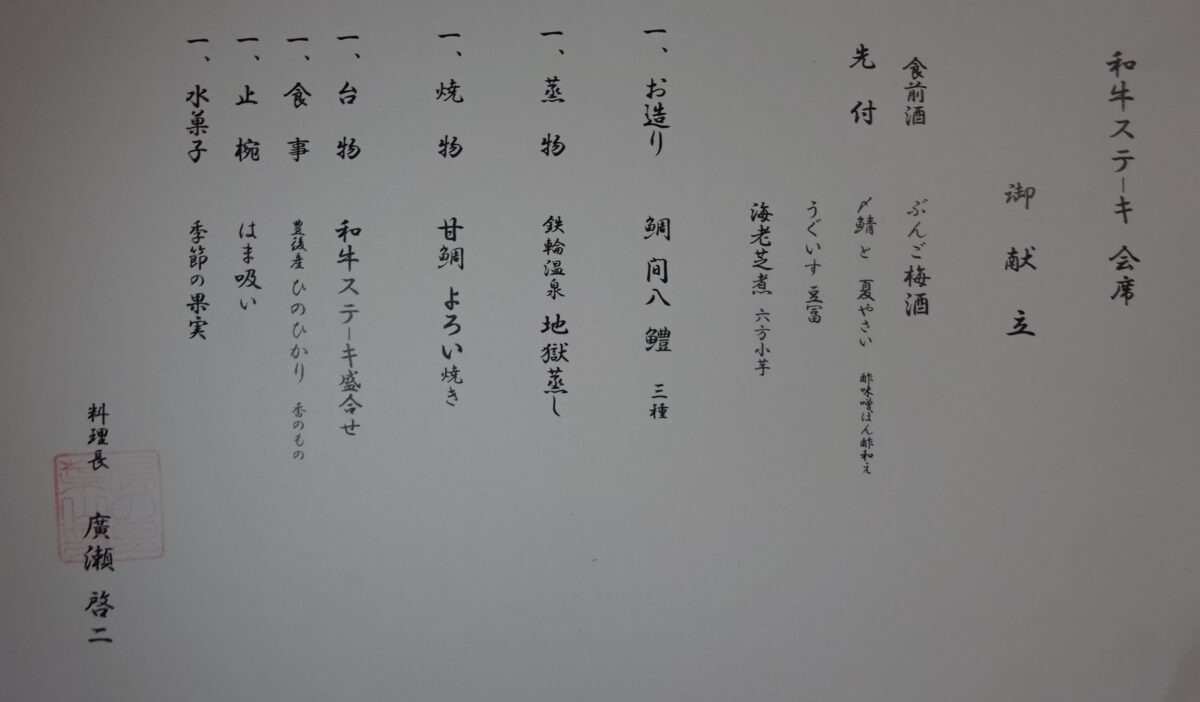 和牛ステーキ 会席
御献立
食前酒 ぶんご梅酒
先付 〆鯖と 夏やさい 酢味噌ぽん酢和え
うぐいす豆冨
海老芝煮 六方小芋
一、お造り 鯛 間八 鱧 三種
一、蒸物 鉄輪温泉 地獄蒸し
一、焼物 甘鯛 よろい焼き
一、台物 和牛ステーキ盛合せ
一、食事 豊後産 ひのひかり 香のもの
一、止椀 はま吸い
一、水菓子 季節の果実
料理長 廣瀬 啓二